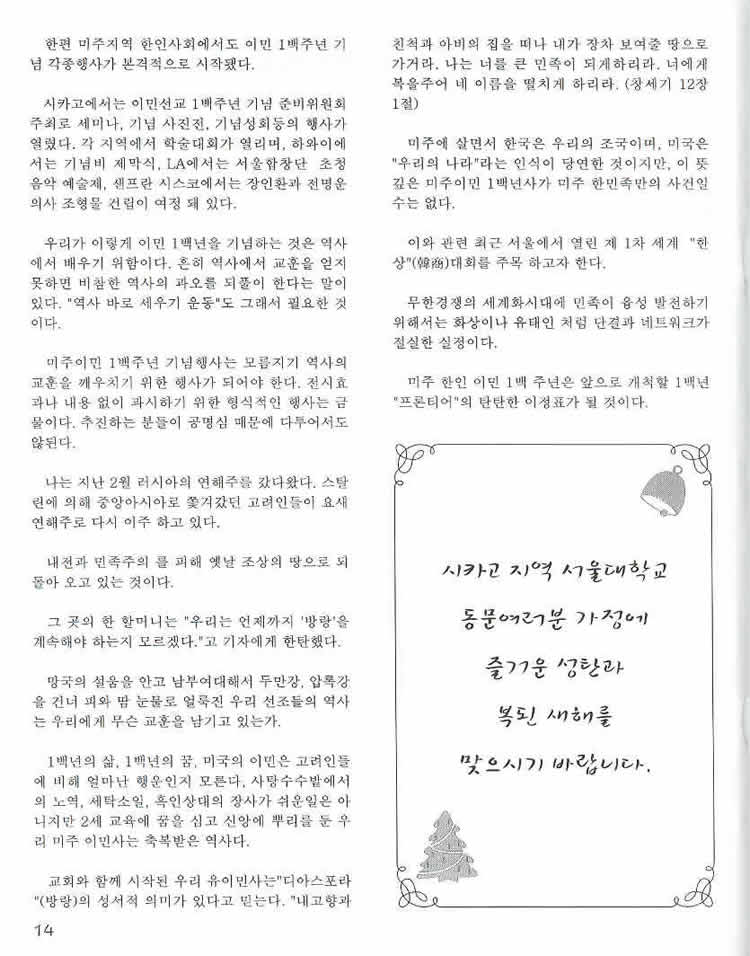 한편 미주지역 한인사회에서도 이민 1백주년 기
념 각종행사가 본격적으로 시작됐다.
시카고에서는 이민선교 1백주년 기념 준비위원회
주최로 세미나, 기념 사진전, 기념성회등의 행사가
열렸다. 각 지역에서 학술대회가 열리며, 하와이에
서는 기념비 제막식, LA에서는 서울합창단 초청
음악 예술제, 샌프란 시스코에서는 장인환과 전명운
의사 조형물 건립이 여정 돼 있다.
우리가 이렇게 이민 1백년을 기념하는 것은 역사
에서 배우기 위함이다. 흔히 역사에서 교훈을 얻지
못하면 비참한 역사의 과오를 되풀이 한다는 말이
있다. "역사 바로 세우기 운동"도 그래서 필요한 것
이다.
미주이민 1백주년 기념행사는 모름지기 역사의
교훈을 깨우치기 위한 행사가 되어야 한다. 전시효
과나 내용 없이 과시하기 위한 형식적인 행사는 금
물이다. 추진하는 분들이 공명심 때문에 다투어서도
않된다.
나는 지난 2월 러시아의 연해주를 갔다왔다. 스탈
린에 의해 중앙아시아로 쫓겨갔던 고려인들이 요새
연해주로 다시 이주 하고 있다.
내전과 민족주의 를 피해 옛날 조상의 땅으로 되
돌아 오고 있는 것이다.
그 곳의 한 할머니는 "우리는 언제까지 '방랑'을
계속해야 하는지 모르겠다."고 기자에게 한탄했다.
망국의 설움을 안고 남부여대해서 두만강, 압록강
을 건너 피와 땀 눈물로 얼룩진 우리 선조들의 역사
는 우리에게 무슨 교훈을 남기고 있는가.
1백년의 삶, 1백년의 꿈, 미국의 이민은 고려인들
에 비해 얼마난 행운인지 모른다. 사탕수수밭에서
의 노역, 세탁소일, 흑인상대의 장사가 쉬운일은 아
니지만 2세 교육에 꿈을 심고 신앙에 뿌리를 둔 우
리 미주 이민사는 축복받은 역사다.
교회와 함께 시작된 우리 유이민사는"디아스포라
"(방랑)의 성서적 의미가 있다고 믿는다. "내고향과
14
친척과 아비의 집을 떠나 내가 장차 보여줄 땅으로
가거라. 나는 너를 큰 민족이 되게하리라. 너에게
복을주어 네 이름을 떨치게 하리라. (창세기 12장
1절)
미주에 살면서 한국은 우리의 조국이며, 미국은
"우리의 나라"라는 인식이 당연한 것이지만, 이 뜻
깊은 미주이민 1백년사가 미주 한민족만의 사건일
수는 없다.
이와 관련 최근 서울에서 열린 제 1차 세계 "한
상"(韓商)대회를 주목 하고자 한다.
무한경쟁의 세계화시대에 민족이 융성 발전하기
위해서는 화상이나 유태인 처럼 단결과 네트워크가
절실한 실정이다.
미주 한인 이민 1백 주년은 앞으로 개척할 1백년
"프론티어"의 탄탄한 이정표가 될 것이다.
시카고 지역 서울대학교
동문여러분 가정에
즐거운 성탄과
복된 새해를
맞으시기 바랍니다.